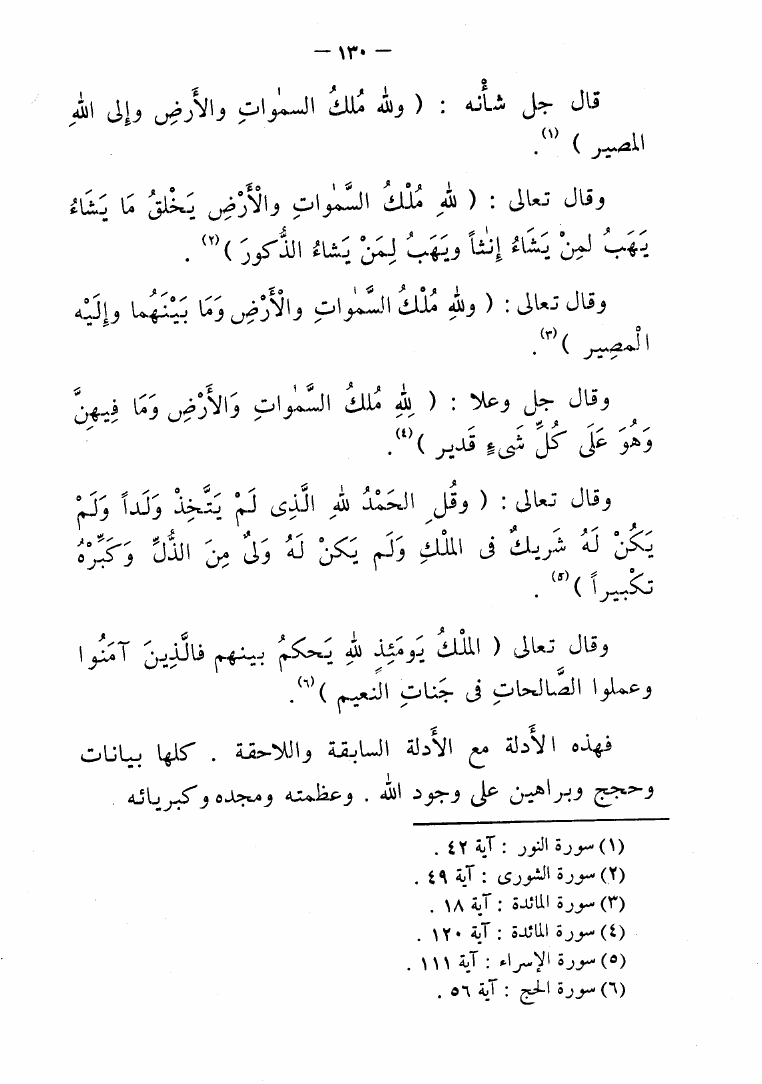 — ١٣٠ —
قال جل شأْنه : ( ولله مُلكُ السمٰواتِ والأَرضِ وإلى اللهِ
المصير )(١).
وقال تعالى : ( للهِ مُلْكُ السَّمٰواتِ والْأَرْضِ يَخْلقُ مَا يَشَاءُ
يَهَبُ لمِنْ يَشَاءُ إنٰثاً ويَهَبُ لِمَنْ يَشاءُ الذُّكورَ )(٢) .
وقال تعالى : ( وللهِ مُلْكُ السَّمٰواتِ والأَرْضِ وَمَا بَيْنَهُما وإلَيْه
الْمصِير )(٣).
وقال جل وعلا : ( لِلهِ مُلكُ السَّمٰواتِ وَالأَرْضِ وَمَا فِيهِنَّ
وَهُوَ عَلَى كُلِّ شَىءٍ قَدير )(٤).
وقال تعالى : ( وقُلِ الحَمْدُ للهِ الَّذِى لَمْ يَتَّخِذْ وَلَداً وَلَمْ
يَكُنْ لَهُ شَريكٌ فى الملْكِ وَلَم يَكنْ لَهُ وَلىٌ مِنَ الذُّلِّ وَكَبِّرْهُ
تكْبيراً )(٥) .
وقال تعالى ( الملْكُ يَومَئِذٍ للهِ يَحكمُ بينهم فالَّذِينَ آمَنُوا
وعملوا الصَّالحاتِ فى جَناتِ النَعيم )(٦).
فهذه الأَدلة مع الأَدلة السابقة واللاحقة . كلها بيانات
وحجج وبراهين على وجود الله . وعظمته ومجده وكبريائه
(١) سورة النور : آية ٤٢ .
(٢) سورة الشورى : آية ٤٩ .
(٣) سورة المائدة : آية ١٨ .
(٤) سورة المائدة : آية ١٢٠ .
(٥) سورة الإسراء : آية ١١١ .
(٦) سورة الحج : آية ٥٦ .